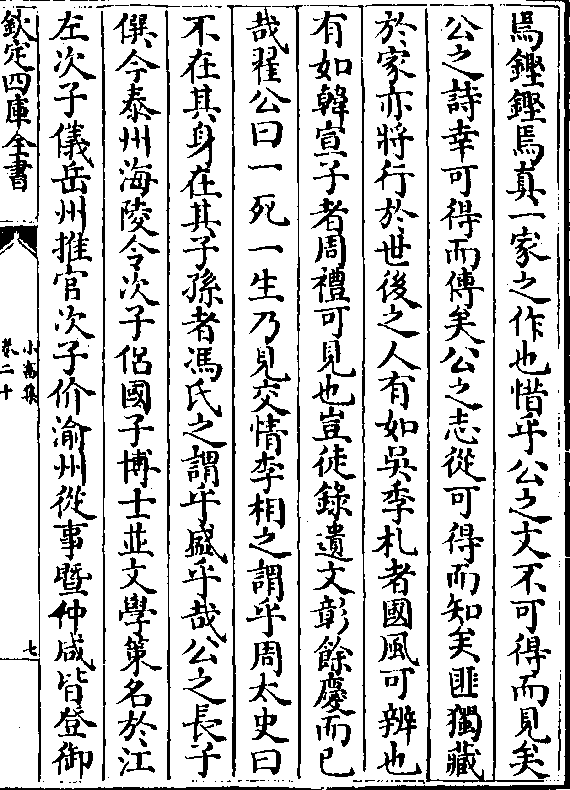 焉鏗鏗焉真一家之作也惜乎公之文不可得而見矣
公之詩幸可得而傳矣公之志從可得而知矣匪獨藏
於家亦將行於世後之人有如吳季札者國風可辨也
有如韓宣子者周禮可見也豈徒錄遺文彰餘慶而已
哉翟公曰一死一生乃見交情李相之謂乎周太史曰
不在其身在其子孫者馮氏之謂乎盛乎哉公之長子
僎今泰州海陵令次子侶國子博士並文學策名於江
左次子儀岳州推官次子价渝州從事暨仲咸皆登御
欽定四庫全書
小畜集
卷二十
七